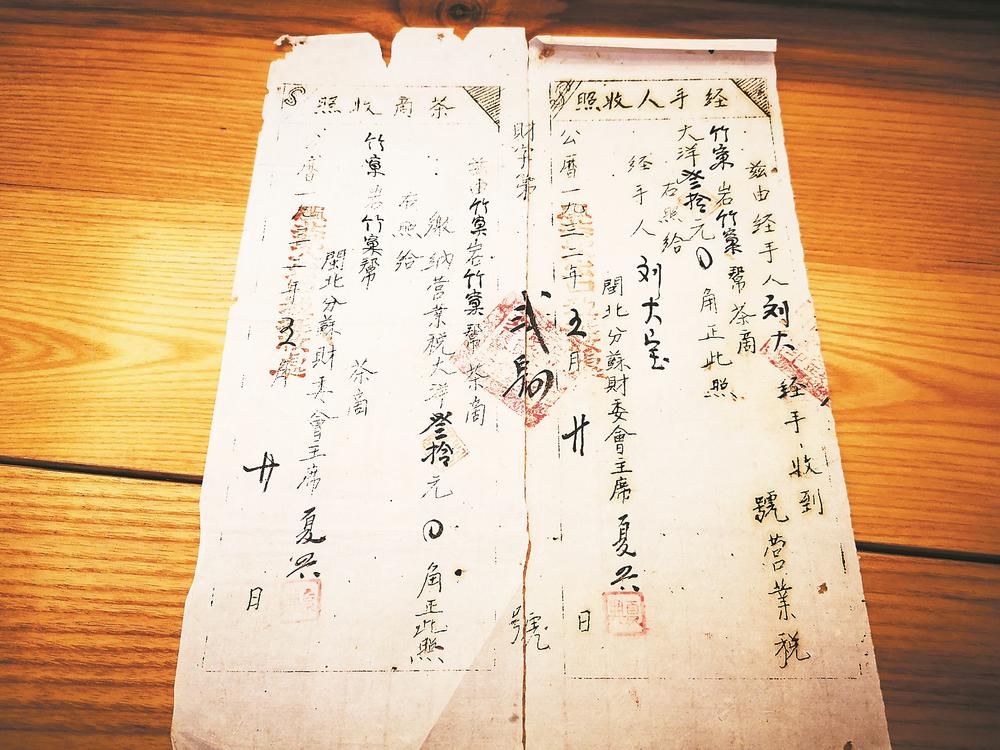 経手人收照
兹由経手人刘大 経手收到
竹窠岩竹窠幇茶商 號営業税
大洋叁拾元0角正此照
右照給
経手人 刘大宝
閩北分蘇財委會主席 夏
公曆一九三二年五月廿 日
財字第 號
茶商收照
兹由竹窠岩竹窠幇茶商
繳納営業税大洋叁拾元0角正此照
右照給
竹窠岩竹窠幇 茶商
閩北分蘇財委會主席 夏
曆一 三二年五月廿 日